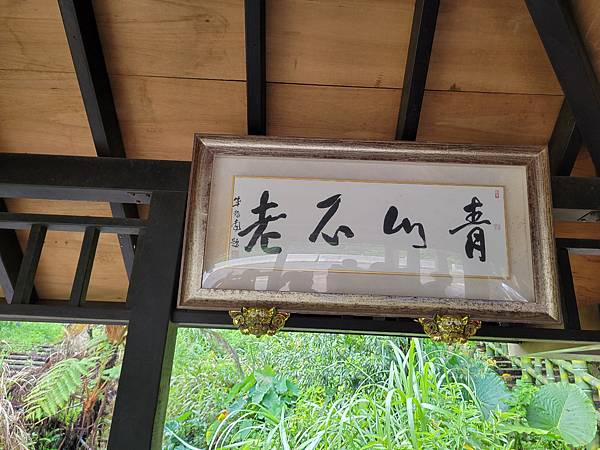 青山不老